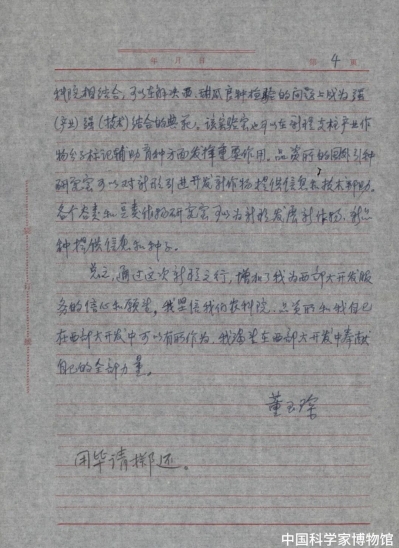 年 月 日 第 4 页
科院相结合,可以在解决西、甜瓜良种检验的问题上成为强
(产业)强(技术)结合的典范。该实验室也可以在制种支柱产业作
物分子标记辅助育种方面发挥重要作用。品资所的国外引种
研究室可以对新疆引进开发新作物提供信息和技术帮助。
各个谷类和豆类作物研究室可以为新疆发展新作物、新品
种提供信息和种子。
总之,通过这次新疆之行,增加了我为西部大开发服
务的信心和愿望。我坚信我们农科院、品资所和我自己
在西部大开发中可以有所作为。我渴望在西部大开发中奉献
自己的全部力量。
董玉琛
用毕请掷还。
中国科学家博物馆